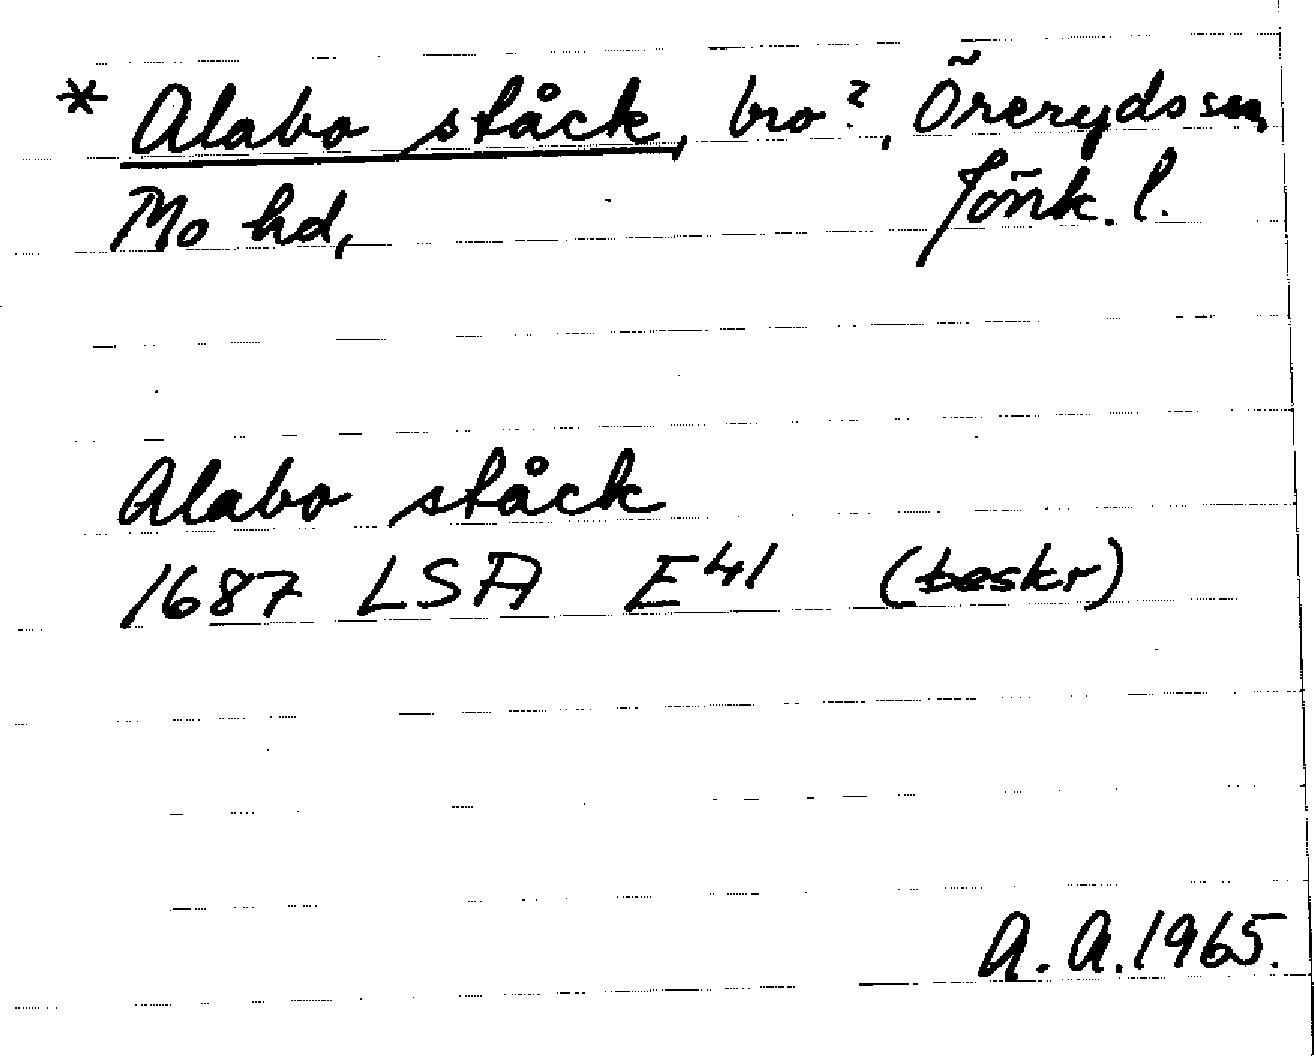 * Alabo ståck, bro?, Öreryds sn,
Mo hd, Jönk. l.
Alabo ståck
1687 LSA E41 (beskr)
A. A. 1965.